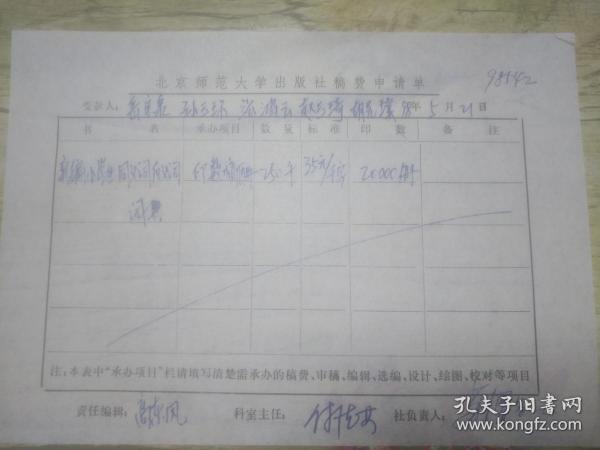 98142
北京师范大学出版社稿费申请单
受款人： 98年5月21日
书名 承办项目 数量 标准 印数 备注
新编小学生同义词反义词 印数稿酬 250千 35元/千字 20000册
词典
注：本表中“承办项目”栏请填写清楚需承办的稿费、审稿、编辑、选编、设计、绘图、校对等项目
责任编辑： 高东风 科室主任： 社负责人：
孔夫子旧书网
www.kongfz.com